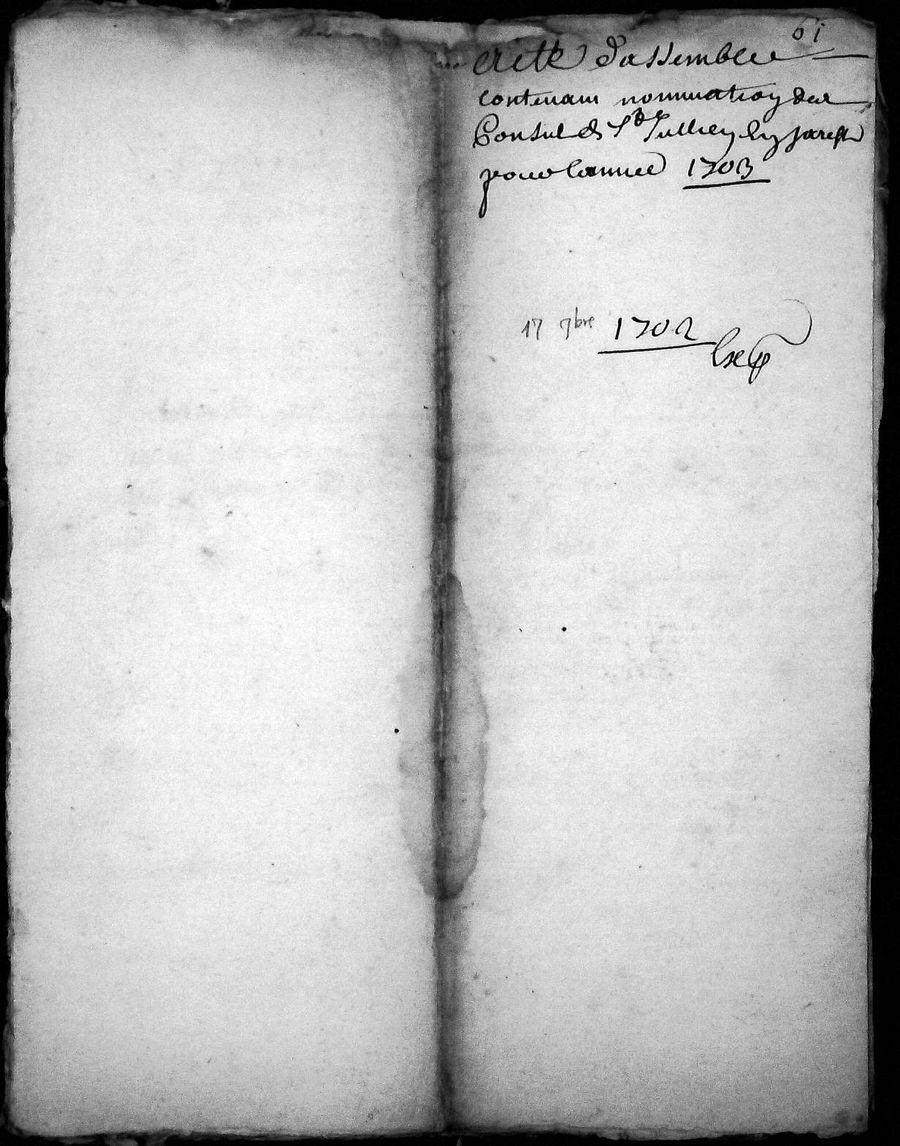 61
acte d'assemblee
contenant nomination des
Consul de St Jullien
pour lannee 1703
17 7bre 1702